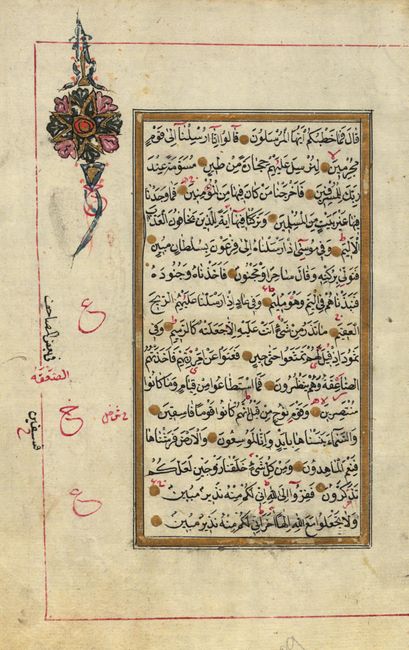 قال فما خطبكم ايها المرسلون قالوا انا ارسلنا الى قوم
مجرمين لنرسل عليهم حجارة من طين مسومة عند
ربك للمسرفين فاخرجنا من كان فيها من المؤمنين فما وجدنا
فيها غير بيت من المسلمين وتركنا فيها اية للذين يخافون العذاب
الاليم وفي موسى اذ ارسلناه الى فرعون بسلطان مبين
فتولى بركنه وقال ساحر او مجنون فاخذناه وجنوده
فنبذناهم في اليم وهو مليم وفي عاد اذ ارسلنا عليهم الريح
العقيم ما تذر من شيء اتت عليه الا جعلته كالرميم وفي
ثمود اذ قيل لهم تمتعوا حتى حين فعتوا عن امر ربهم فاخذتهم
الصاعقة وهم ينظرون فما استطاعوا من قيام وما كانوا
منتصرين وقوم نوح من قبل انهم كانوا قوما فاسقين
والسماء بنيناها بايد وانا لموسعون والارض فرشناها
فنعم الماهدون ومن كل شيء خلقنا زوجين لعلكم
تذكرون ففروا الى الله اني لكم منه نذير مبين
ولا تجعلوا مع الله الها اخر اني لكم منه نذير مبين
ع
الصعقة
ع